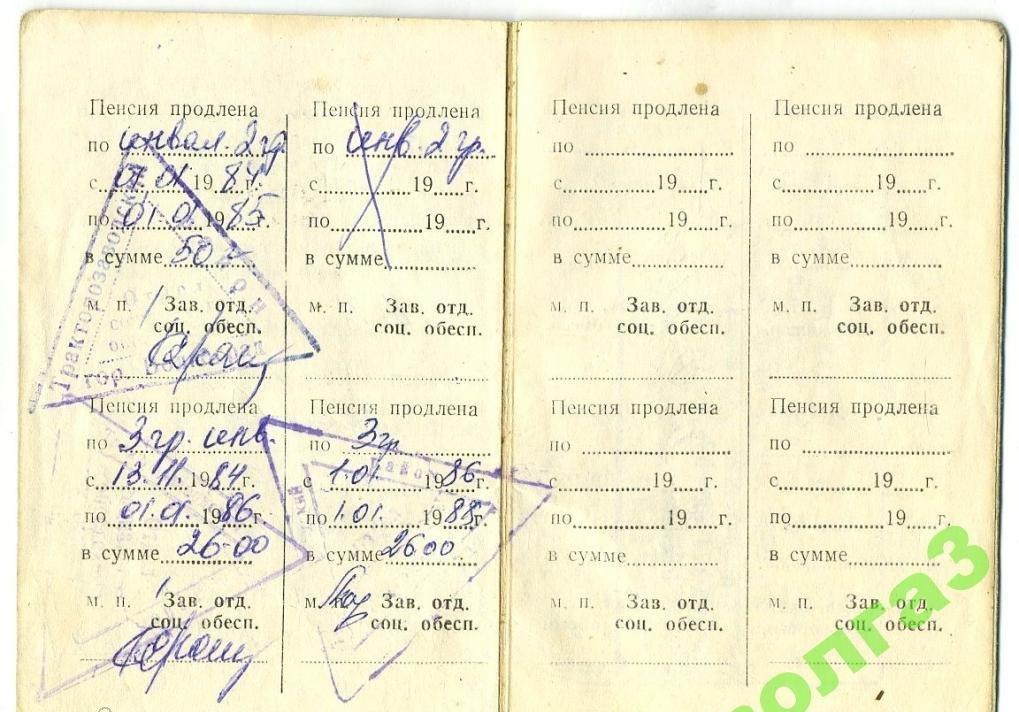 Пенсия продлена
по инвал. 2 гр.
с 01.01 1984 г.
по 01.01 1985 г.
в сумме 50
м. п. Зав. отд.
соц. обесп.
Пенсия продлена
по инв. 2 гр.
с 19 г.
по 19 г.
в сумме
м. п. Зав. отд.
соц. обесп.
Пенсия продлена
по
с 19 г.
по 19 г.
в сумме
м. п. Зав. отд.
соц. обесп.
Пенсия продлена
по
с 19 г.
по 19 г.
в сумме
м. п. Зав. отд.
соц. обесп.
Пенсия продлена
по 3 гр. инв.
с 13.11.1984 г.
по 01.01 1986 г.
в сумме 26-00
м. п. Зав. отд.
соц. обесп.
Пенсия продлена
по 3 гр.
с 1.01. 1986 г.
по 1.01. 1988 г.
в сумме 26 00
м. п. Зав. отд.
соц. обесп.
Пенсия продлена
по
с 19 г.
по 19 г.
в сумме
м. п. Зав. отд.
соц. обесп.
Пенсия продлена
по
с 19 г.
по 19 г.
в сумме
м. п. Зав. отд.
соц. обесп.
Тракторозаводский
район
гор. Волгоград
волгаз